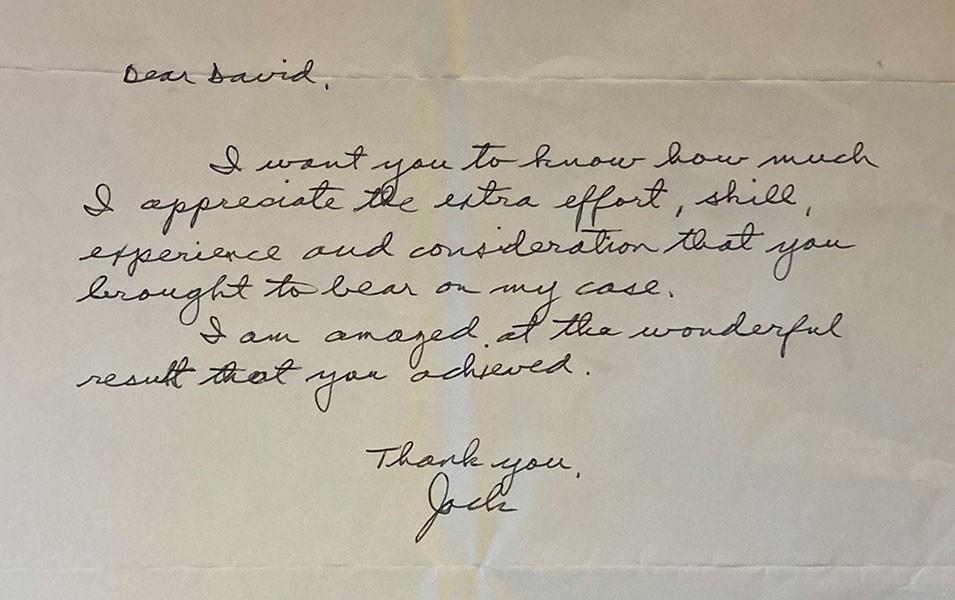 Dear David,
I want you to know how much
I appreciate the extra effort, skill,
experience and consideration that you
brought to bear on my case.
I am amazed at the wonderful
result that you achieved.
Thank you,
Jack